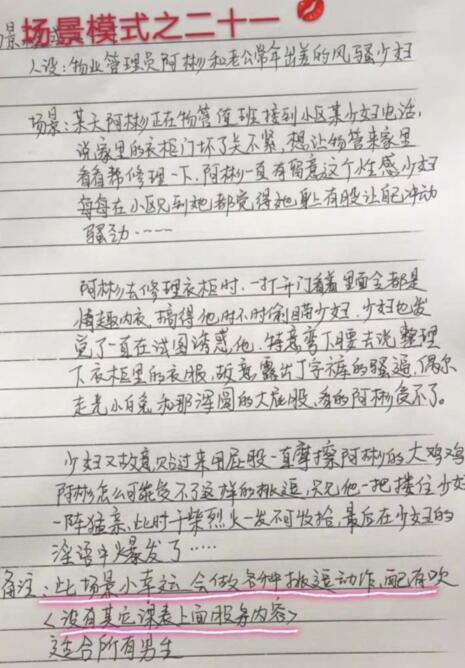 场景模式之二十一
人设：物业管理员阿彬和老公常年出差的风骚少妇
场景：某天阿彬正在物管值班接到小区某少妇电话，
说家里的衣柜门坏了关不紧，想让物管来家里
看看帮修理一下，阿彬一直有留意这个性感少妇
每每在小区见到她都觉得她身上有股让自己冲动
骚劲……
阿彬去修理衣柜时，一打开门看着里面全都是
情趣内衣，搞得他时不时偷瞄少妇，少妇也发
觉了一直在试图诱惑他，特意弯下腰去说整理
下衣柜里的衣服，故意露出丁字裤的骚逼，偶尔
走光小白兔和那浑圆的大屁股，看的阿彬受不了。
少妇又故意贴过来用屁股一直摩擦阿彬的大鸡鸡
阿彬怎么可能受不了这样的挑逗，只见他一把搂住少妇
一阵猛亲，此时干柴烈火一发不可收拾，最后在少妇的
淫语中爆发了……
备注：此场景小幸运会做各种挑逗动作，配有吹
<没有其它课表上面服务内容>
适合所有男生